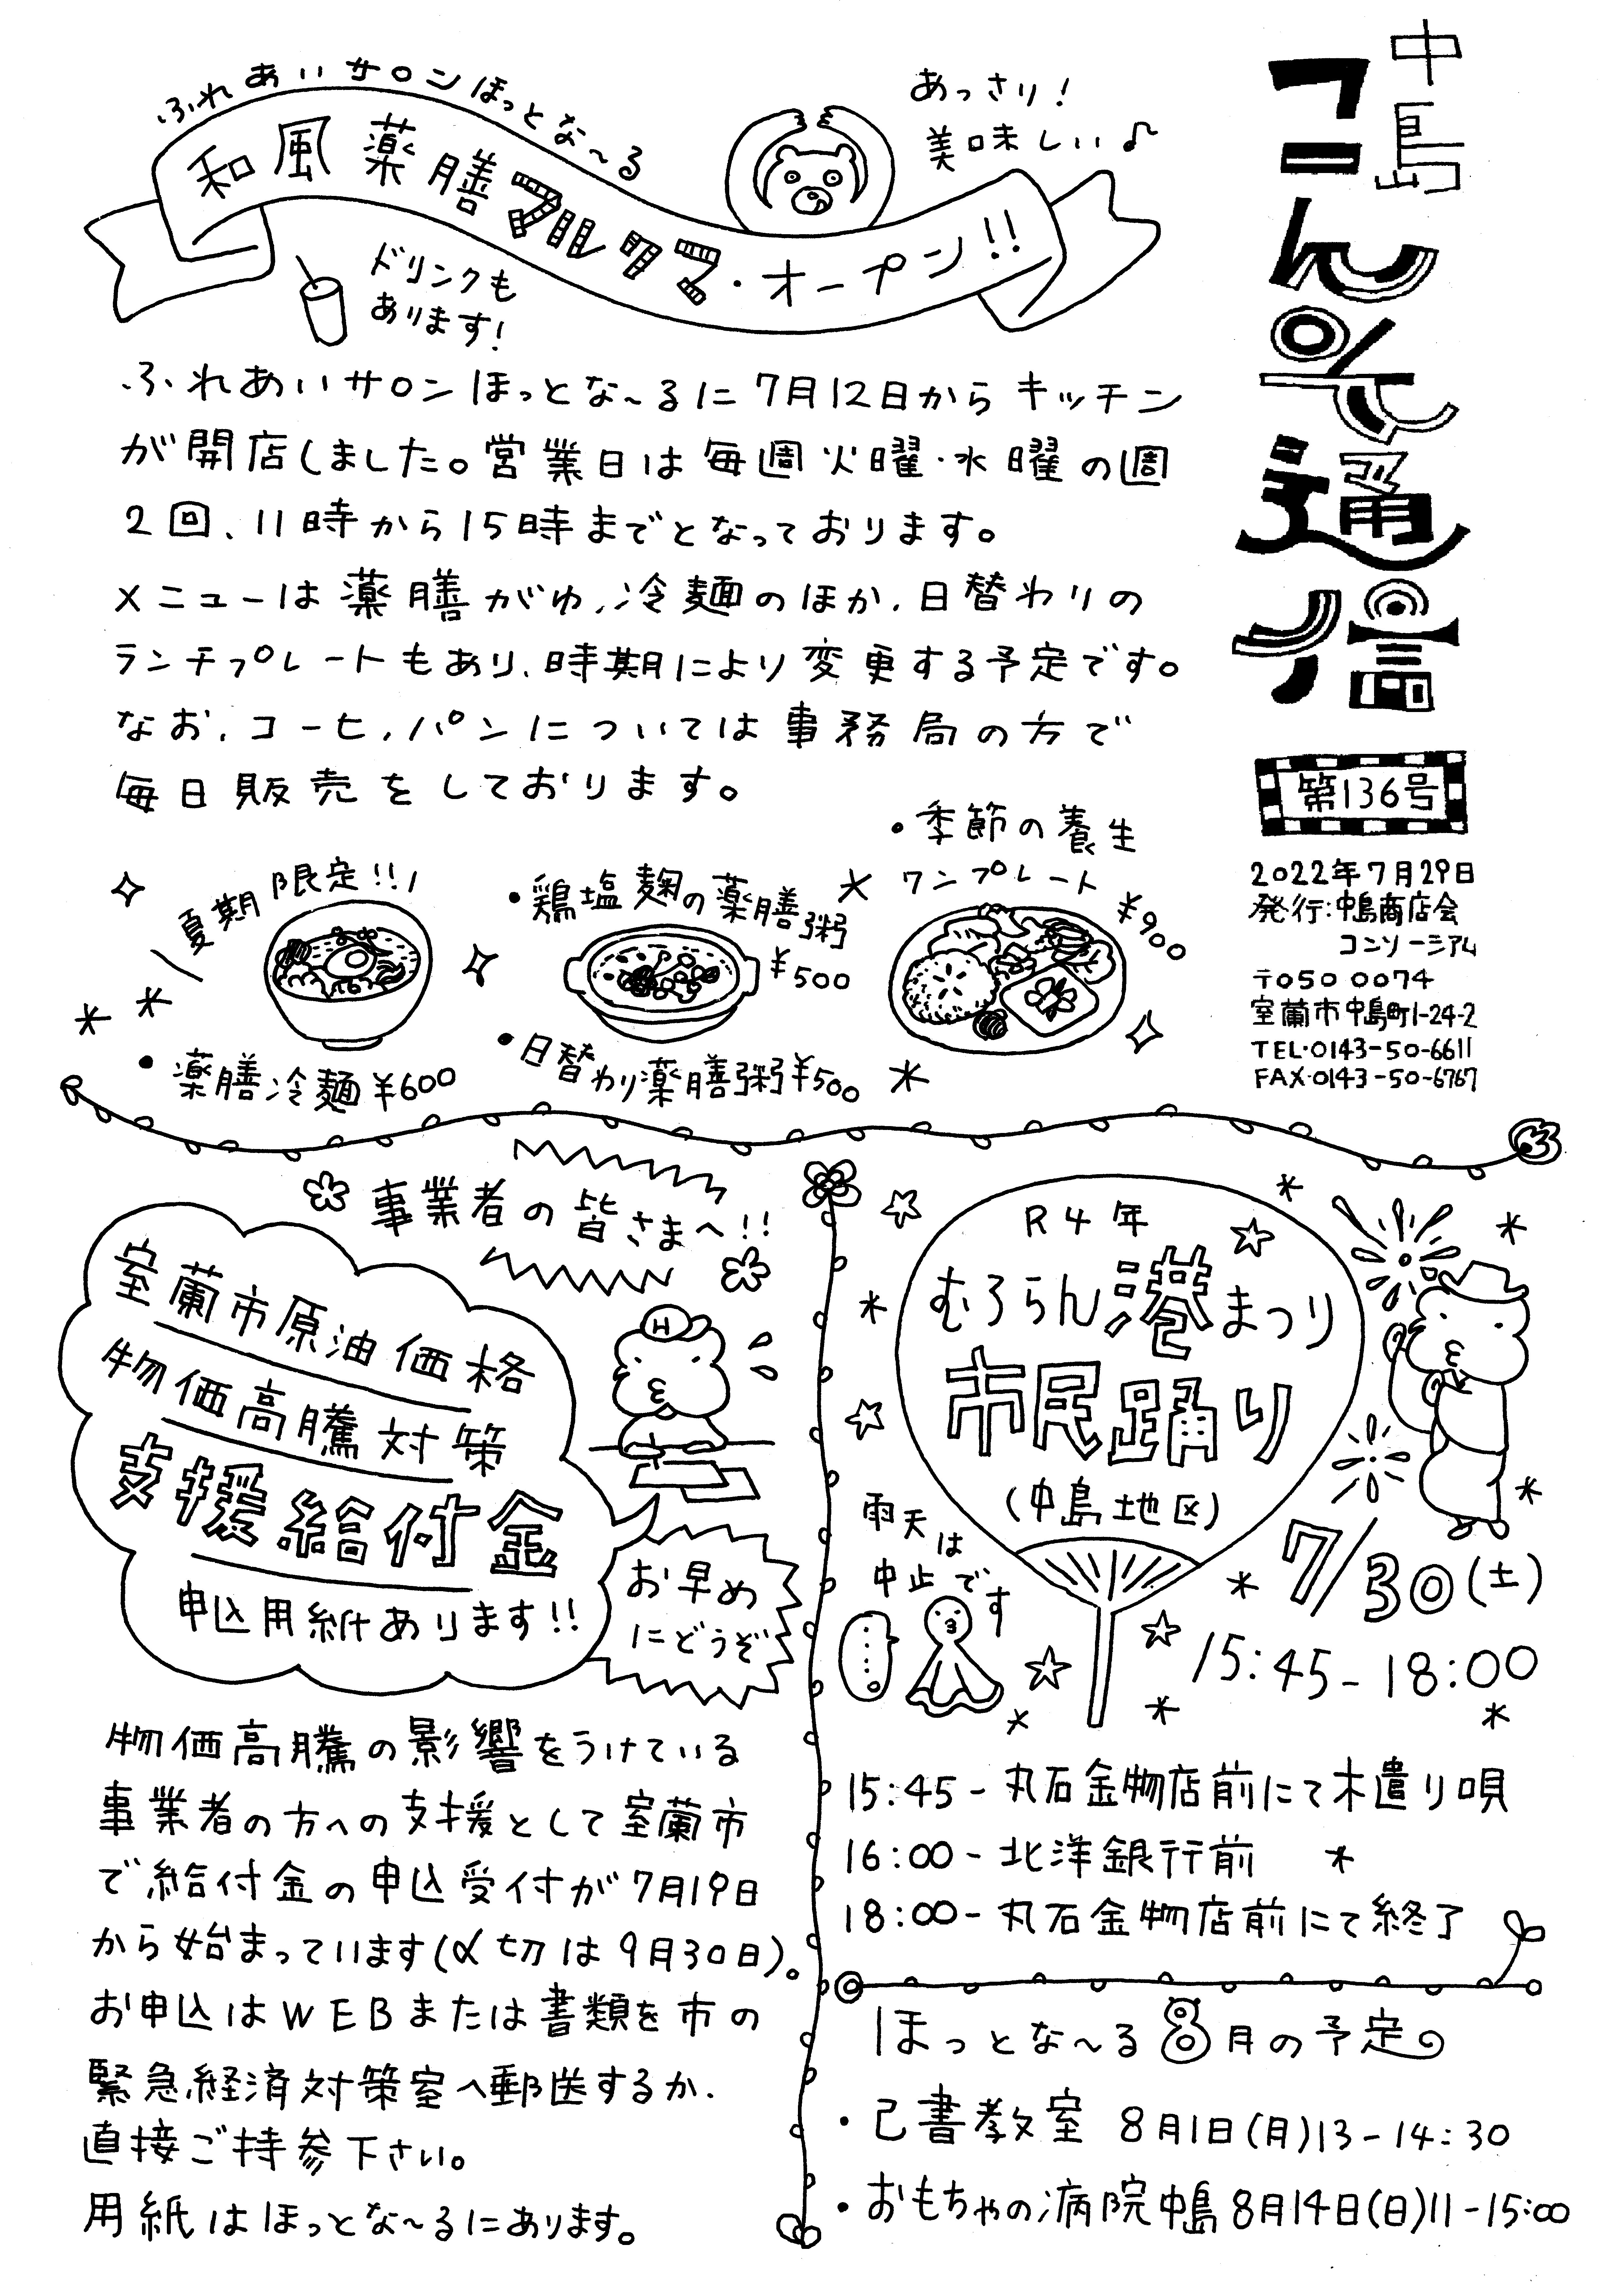 中島
コンんそ通信
第136号
2022年7月29日
発行:中島商店会
コンソーシアム
〒050 0074
室蘭市中島町1-24-2
TEL・0143-50-6611
FAX・0143-50-6767
ふれあいサロンほっとな〜る
和風薬膳マルクマ・オープン!!
あっさり!
美味しい♪
ドリンクも
あります!
ふれあいサロンほっとな〜るに7月12日からキッチン
が開店しました。営業日は毎週火曜・水曜の週
2回、11時から15時までとなっております。
メニューは薬膳がゆ、冷麺のほか、日替わりの
ランチプレートもあり、時期により変更する予定です。
なお、コーヒ、パンについては事務局の方で
毎日販売をしております。
夏期限定!!
・薬膳冷麺¥600
・鶏塩麹の薬膳粥
¥500
・日替わり薬膳粥¥500
・季節の養生
ワンプレート
¥900
事業者の皆さまへ!!
室蘭市原油価格
物価高騰対策
支援給付金
申込用紙あります!!
H
お早め
にどうぞ
物価高騰の影響をうけている
事業者の方への支援として室蘭市
で給付金の申込受付が7月19日
から始まっています(〆切は9月30日)。
お申込はWEBまたは書類を市の
緊急経済対策室へ郵送するか、
直接ご持参下さい。
用紙はほっとな〜るにあります。
R4年
むろらん港まつり
市民踊り
(中島地区)
雨天は
中止です
7/30(土)
15:45-18:00
15:45-丸石金物店前にて木遣り唄
16:00-北洋銀行前
18:00-丸石金物店前にて終了
ほっとな〜る8月の予定
・己書教室 8月1日(月)13-14:30
・おもちゃの病院中島8月14日(日)11-15:00